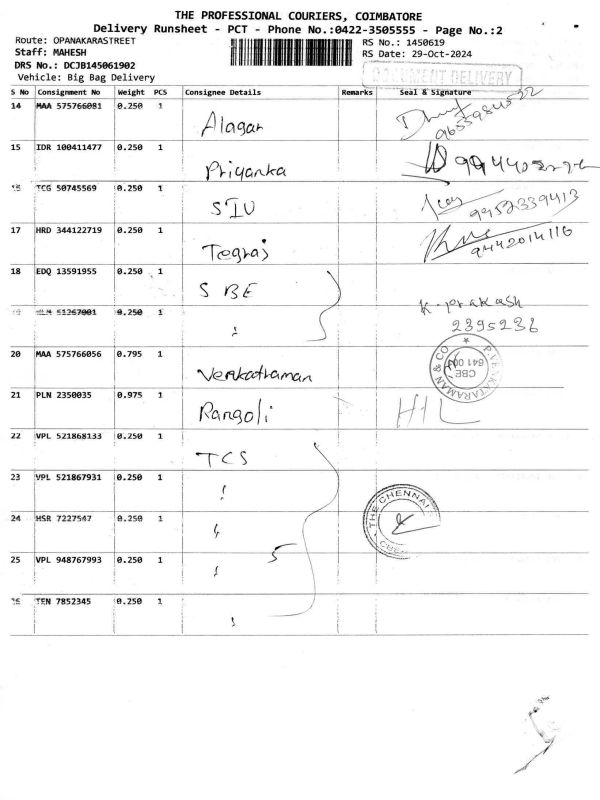 THE PROFESSIONAL COURIERS, COIMBATORE
Delivery Runsheet - PCT - Phone No.:0422-3505555 - Page No.:2
Route: OPANAKARASTREET RS No.: 1450619
Staff: MAHESH RS Date: 29-Oct-2024
DRS No.: DCJB145061902
Vehicle: Big Bag Delivery
DOCUMENT DELIVERY
S No Consignment No Weight PCS Consignee Details Remarks Seal & Signature
14 MAA 575766081 0.250 1 Alagar 9655984522
15 IDR 100411477 0.250 1 Priyanka
TCG 50745569 0.250 1 SIU 9952339413
17 HRD 344122719 0.250 1 Tegraj 9442014116
18 EDQ 13591955 0.250 1 SBE
51267001 0.250 1 K. Prakash
2395236
20 MAA 575766056 0.795 1 Venkatraman P. VENKATARAMAN & CO CBE 641 001
21 PLN 2350035 0.975 1 Rangoli HIL
22 VPL 521868133 0.250 1 TCS
23 VPL 521867931 0.250 1 THE CHENNAI
24 HSR 7227547 0.250 1
25 VPL 948767993 0.250 1 5
TEN 7852345 0.250 1